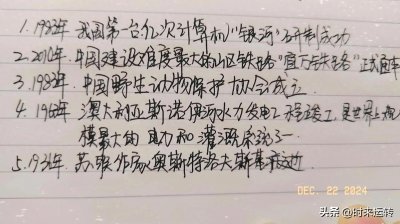 1.1983年 我国第一台亿次计算机"银河"研制成功
2.2010年.中国建设难度最大的山区铁路"宜万铁路"正式通车
3.1983年.中国野生动物保护协会成立.
4.19 年.澳大利亚斯诺伊河水力发电工程竣工,是世界上规
模最大的 力和灌溉系统之一
5.1936年.苏联作家奥斯特洛夫斯基逝世
DEC. 22 2024
头条@时来运转